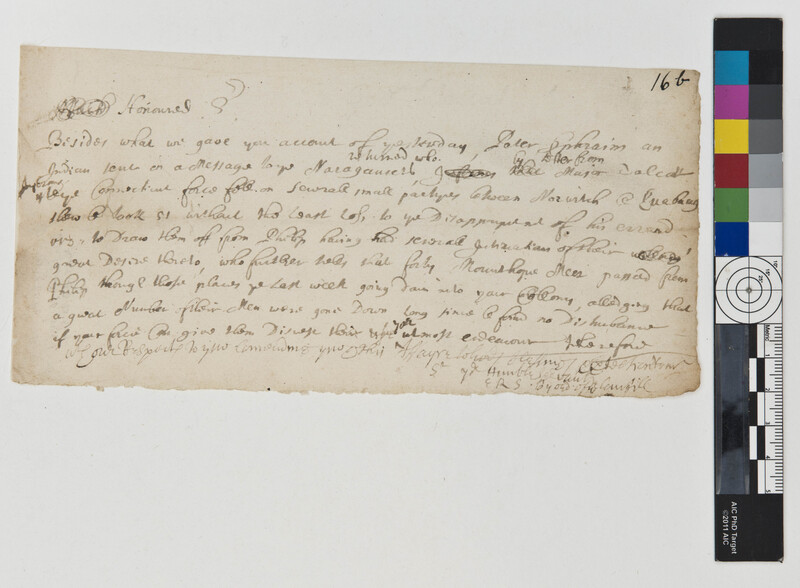 16 b
Honoured Sr
Besides what we gave you account of yesterday Peter Ephraim an
Indian sent on a Message to ye Naragansets returned who by Peter from that Major Talcott
Informs
wth ye Connecticut force fell on severall small partyes between Norwitch & Quabaug
slew & took 51 without the least loss to ye Disappoyntment of his errand
to Draw them off from Philip having had severall Intimations of their
great Desire thereto, who further tells that forty Mounthope Men passed from
Philip through those places ye last week going Down into your Collony, alledging that
a great Number of their Men were gone Down long since & found no Disturbance
if your force Can give them Disrest their utmost endeavour therefore
wth our Respects to you
Sr yr Humble Servant
E R S By ord of ye Councill
AIC PhD Target
©2011 AIC
Metric
1
2
3
4
5